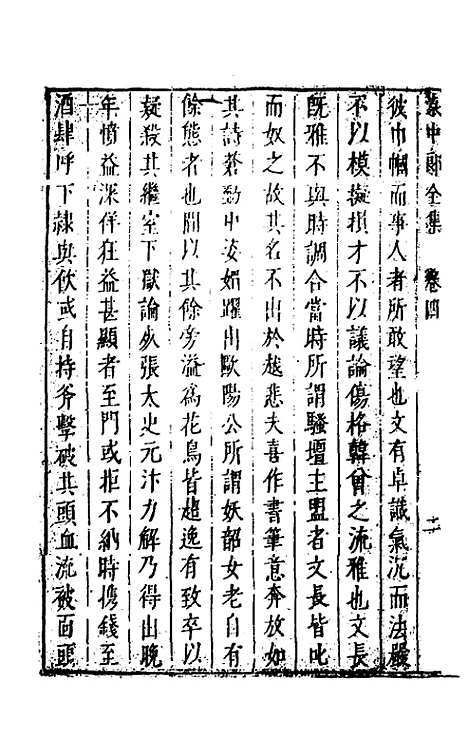 袁中郎全集 卷四 十二
彼巾幗而事人者所敢望也文有卓識氣沉而法嚴
不以模擬損才不以議論傷格韓曾之流雅也文長
既雅不與時調合當時所謂騷壇主盟者文長皆叱
而奴之故其名不出於越悲夫喜作書筆意奔放如
其詩蒼勁中姿媚躍出歐陽公所謂妖韶女老自有
餘態者也間以其餘旁溢爲花鳥皆超逸有致卒以
疑殺其繼室下獄論死張太史元汴力解乃得出晚
年憤益深佯狂益甚顯者至門或拒不納時攜錢至
酒肆呼下隸與飲或自持斧擊破其頭血流被面頭